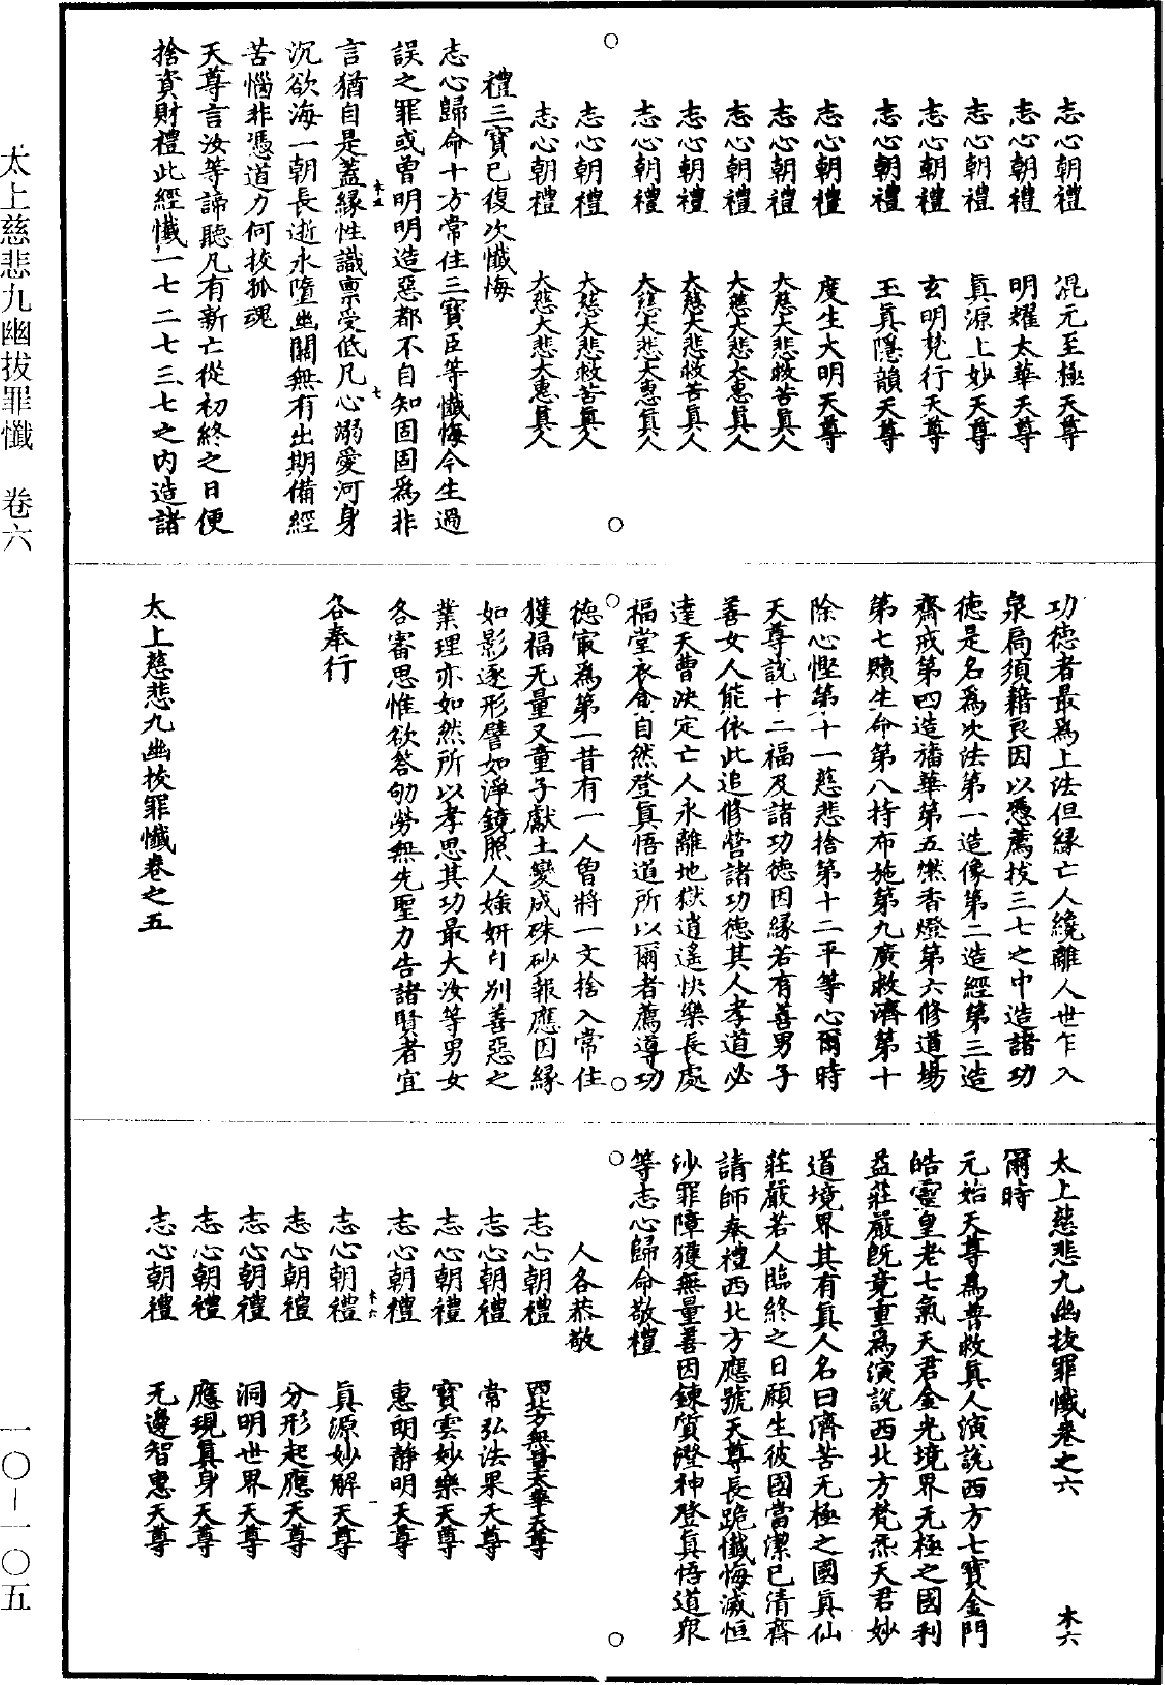 太上慈悲九幽拔罪懺　卷六
一〇－一〇五
志心朝禮　混元至極天尊
志心朝禮　明耀太華天尊
志心朝禮　真源上妙天尊
志心朝禮　玄明梵行天尊
志心朝禮　玉真隱韻天尊
志心朝禮　度生大明天尊
志心朝禮　大慈大悲救苦真人
志心朝禮　大慈大悲大惠真人
志心朝禮　大慈大悲救苦真人
志心朝禮　大慈大悲大惠真人
志心朝禮　大慈大悲救苦真人
志心朝禮　大慈大悲大惠真人
禮三寶已復次懺悔
志心歸命十方常住三寶臣等懺悔今生過
誤之罪或曾明明造惡都不自知固固為非
言猶自是蓋緣性識稟受低凡心溺愛河身
木五
七
沉欲海一朝長逝永墮幽關無有出期備經
苦惱非憑道力何拔孤魂
天尊言汝等諦聽凡有新亡從初終之日便
捨資財禮此經懺一七二七三七之內造諸
功德者最為上法但緣亡人纔離人世乍入
泉局須藉良因以憑薦拔三七之中造諸功
德是名為次法第一造像第二造經第三造
齋戒第四造旛華第五燃香燈第六修道場
第七贖生命第八持布施第九廣救濟第十
除心慳第十一慈悲捨第十二平等心爾時
天尊說十二福及諸功德因緣若有善男子
善女人能依此追修營諸功德其人孝道必
達天曹決定亡人永離地獄逍遙快樂長處
福堂衣食自然登真悟道所以爾者薦導功
德最為第一昔有一人曾將一文捨入常住
獲福无量又童子獻土變成硃砂報應因緣
如影逐形譬如淨鏡照人媸妍自別善惡之
業理亦如然所以孝思其功最大汝等男女
各審思惟欲答劬勞無先聖力告諸賢者宜
各奉行
太上慈悲九幽拔罪懺卷之五
太上慈悲九幽拔罪懺卷之六　木六
爾時
元始天尊為普救真人演說西方七寶金門
皓靈皇老七氣天君金光境界无極之國利
益莊嚴既竟重為演說西北方梵炁天君妙
道境界其有真人名曰濟苦无極之國真仙
莊嚴若人臨終之日願生彼國當潔已清齋
請師奉禮西北方應號天尊長跪懺悔滅恒
沙罪障獲無量善因鍊質澄神登真悟道眾
等志心歸命敬禮
人各恭敬
志心朝禮　西北方無量太華天尊
志心朝禮　常弘法果天尊
志心朝禮　寶雲妙樂天尊
志心朝禮　惠朗靜明天尊
木六
一
志心朝禮　真源妙解天尊
志心朝禮　分形起應天尊
志心朝禮　洞明世界天尊
志心朝禮　應現真身天尊
志心朝禮　无邊智惠天尊